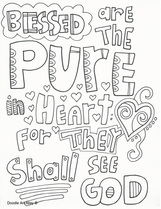 BLESSED are
THE
PURE
in Heart
FOR THEY
Shall SEE
GOD
Doodle Art Alley ©